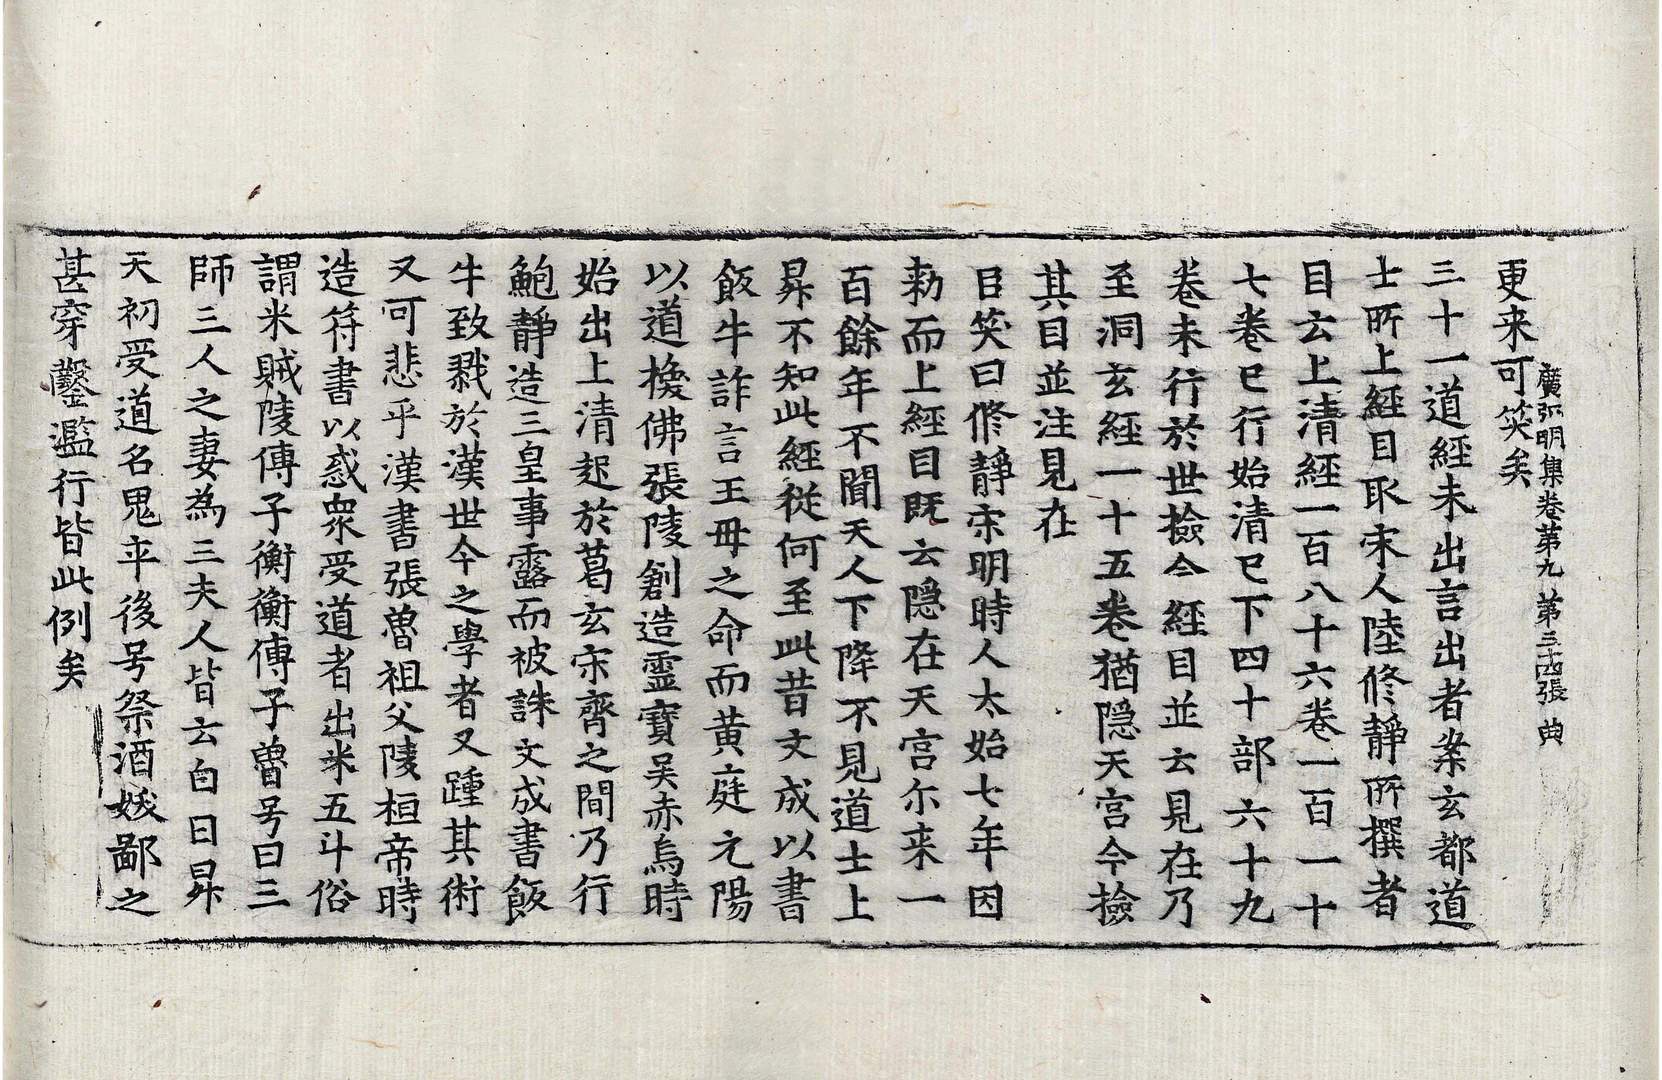 廣弘明集卷第九 第三十四張 典
更来可笑矣
三十一道經未出言出者案玄都道
士所上經目取宋人陸修静所撰者
目云上清經一百八十六卷一百一十
七卷已行始清已下四十部六十九
卷未行於世撿今經目並云見在乃
至洞玄經一十五卷猶隠天宫今撿
其目並注見在
臣笑曰修静宋明時人太始七年因
勑而上經目既云隠在天宫尒来一
百餘年不聞天人下降不見道士上
昇不知此經従何至此昔文成以書
飯牛詐言王母之命而黄庭元陽
以道換佛張陵創造靈寳吴赤烏時
始出上清起於葛玄宋齊之間乃行
鮑静造三皇事露而被誅文成書飯
牛致戮於漢世今之學者又踵其術
又可悲乎漢書張魯祖父陵桓帝時
造符書以惑衆受道者出米五斗俗
謂米賊陵傳子衡衡傳子魯号曰三
師三人之妻為三夫人皆云白日昇
天初受道名鬼卒後号祭酒妖鄙之
甚穿鑿濫行皆此例矣